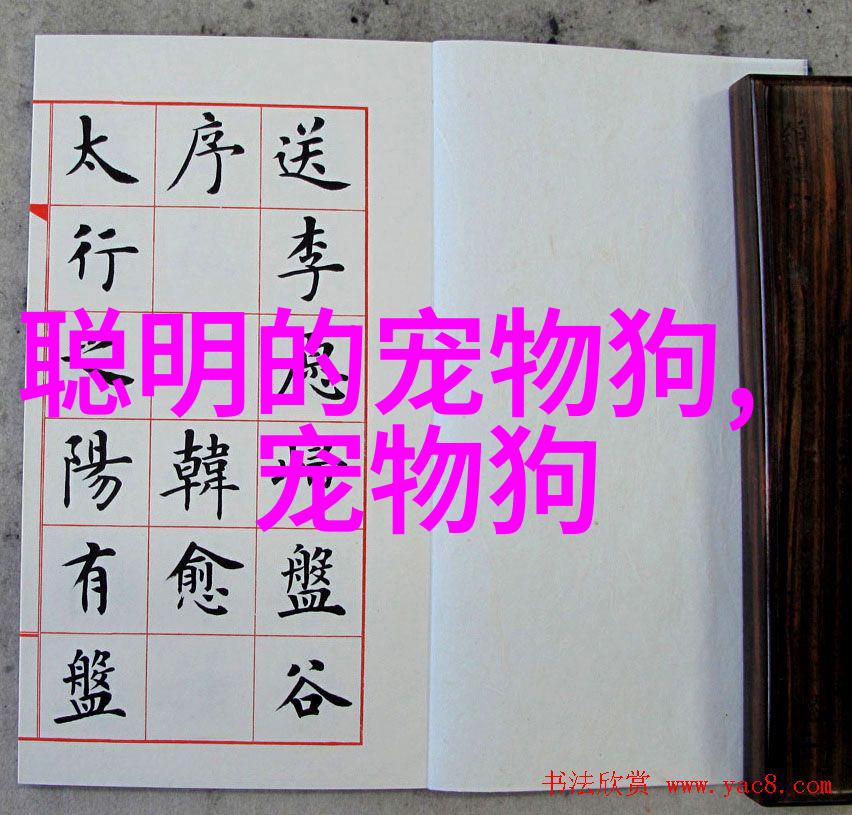 送李愿盤谷
序 韓愈
太行陽有盤
聪明的宠物狗,
宠物狗
书法欣赏 www.yac8.com